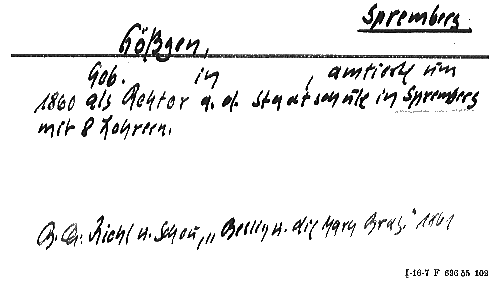 Spremberg
Kößgen,
Geb. in , amtierte um
1860 als Rektor a. d. Stadtschule in Spremberg
mit 8 Lehrern.
B. Ch. Riehl u. Scheu, „Berlin u. die Mark Brdg." 1861
I-16-7 F 636 55 102